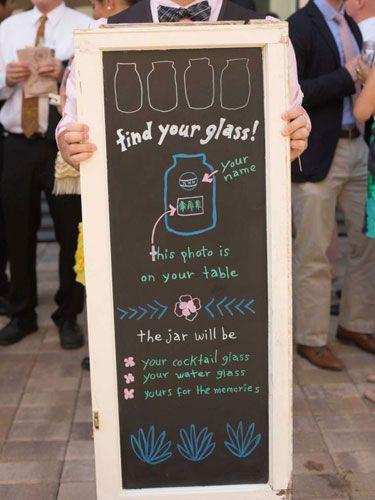 find your glass!
your
name
this photo is
on your table
the jar will be
your cocktail glass
your water glass
yours for the memories